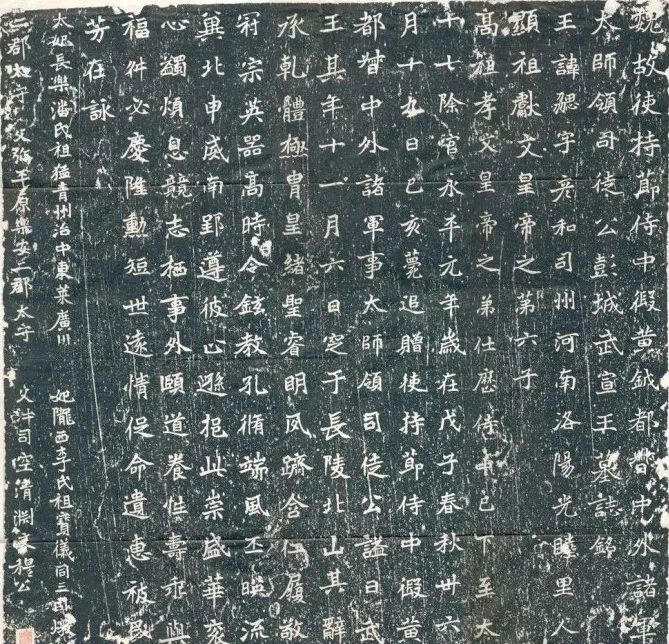 魏故使持節侍中假黃鉞都督中外諸軍
太師領司徒公彭城武宣王墓誌銘
王諱勰字彥和司州河南洛陽光睦里人
顯祖獻文皇帝之第六子
高祖孝文皇帝之弟仕歷侍中已下至太
十七除官永平元年歲在戊子春秋卅六
月十九日己亥薨追贈使持節侍中假黃
都督中外諸軍事太師領司徒公謚曰武
王其年十一月六日窆于長陵北山其辭
承乾體極胄皇緒聖睿明夙躋含仁履敬
冠宗英器高時令鉉教孔脩端風丕暎流
冀北申威南郢遵彼止遜挹此崇盛華袞
心蠲煩息競志栖事外頤道養性壽乖與
福舛必慶隆勳短世遠情促命遺惠被民
芳在詠
太妃長樂潘氏祖猛青州治中東萊廣川 妃隴西李氏祖寶儀同三司燉
二郡太守 父弥平原樂安二郡太守 父沖司空清淵文穆公